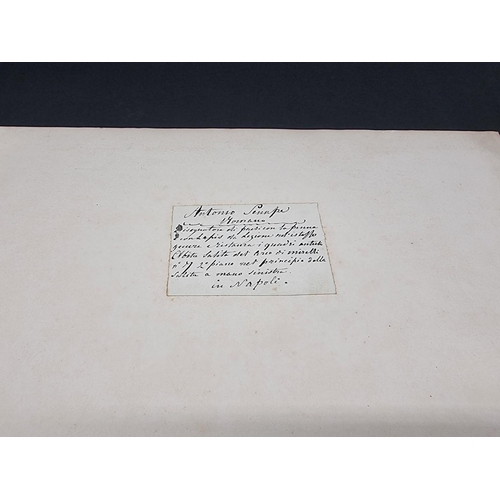 Antonio Senape
Romano
Disegnatore di paesi con la penna
e con Lapis dà Lezione nel istesso
genere e ristaura i quadri antichi
Abita Salita del Arco di mirelli
n.° 2° piano nel principio della
Salita a mano sinistra
in Napoli.